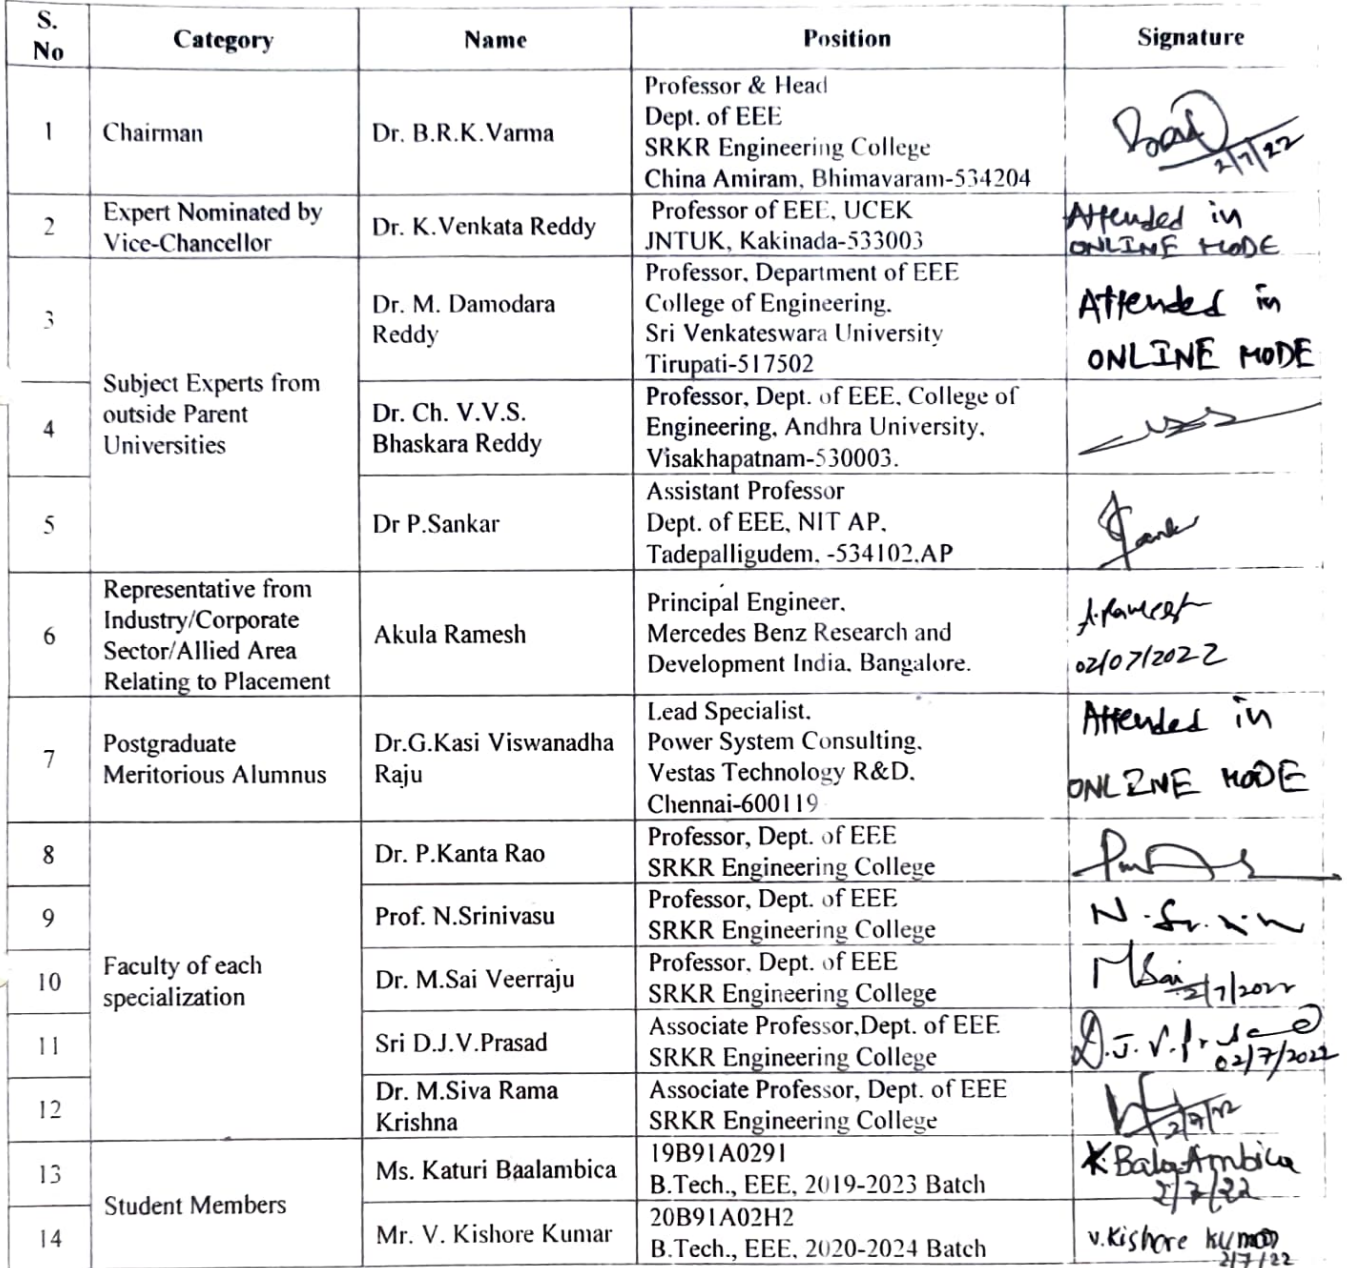 S. No Category Name Position Signature
1 Chairman Dr. B.R.K.Varma Professor & Head
Dept. of EEE
SRKR Engineering College
China Amiram, Bhimavaram-534204
2/7/22
2 Expert Nominated by Vice-Chancellor Dr. K.Venkata Reddy Professor of EEE, UCEK
JNTUK, Kakinada-533003
Attended in
ONLINE MODE
3 Subject Experts from outside Parent Universities Dr. M. Damodara Reddy Professor, Department of EEE
College of Engineering.
Sri Venkateswara University
Tirupati-517502
Attended in
ONLINE MODE
4 Dr. Ch. V.V.S. Bhaskara Reddy Professor, Dept. of EEE, College of
Engineering, Andhra University,
Visakhapatnam-530003.
5 Dr P.Sankar Assistant Professor
Dept. of EEE, NIT AP,
Tadepalligudem. -534102.AP
6 Representative from Industry/Corporate Sector/Allied Area Relating to Placement Akula Ramesh Principal Engineer,
Mercedes Benz Research and
Development India, Bangalore.
A.Ramesh
02/07/2022
7 Postgraduate Meritorious Alumnus Dr.G.Kasi Viswanadha Raju Lead Specialist.
Power System Consulting,
Vestas Technology R&D.
Chennai-600119
Attended in
ONLINE MODE
8 Faculty of each specialization Dr. P.Kanta Rao Professor, Dept. of EEE
SRKR Engineering College
9 Prof. N.Srinivasu Professor, Dept. of EEE
SRKR Engineering College
10 Dr. M.Sai Veerraju Professor, Dept. of EEE
SRKR Engineering College
MSai
2/7/2022
11 Sri D.J.V.Prasad Associate Professor,Dept. of EEE
SRKR Engineering College
D.J.V.Prasad
02/7/2022
12 Dr. M.Siva Rama Krishna Associate Professor, Dept. of EEE
SRKR Engineering College
2/7/22
13 Student Members Ms. Katuri Baalambica 19B91A0291
B.Tech., EEE, 2019-2023 Batch
K.Bala Ambica
2/7/22
14 Mr. V. Kishore Kumar 20B91A02H2
B.Tech., EEE, 2020-2024 Batch
V.Kishore Kumar
2/7/22